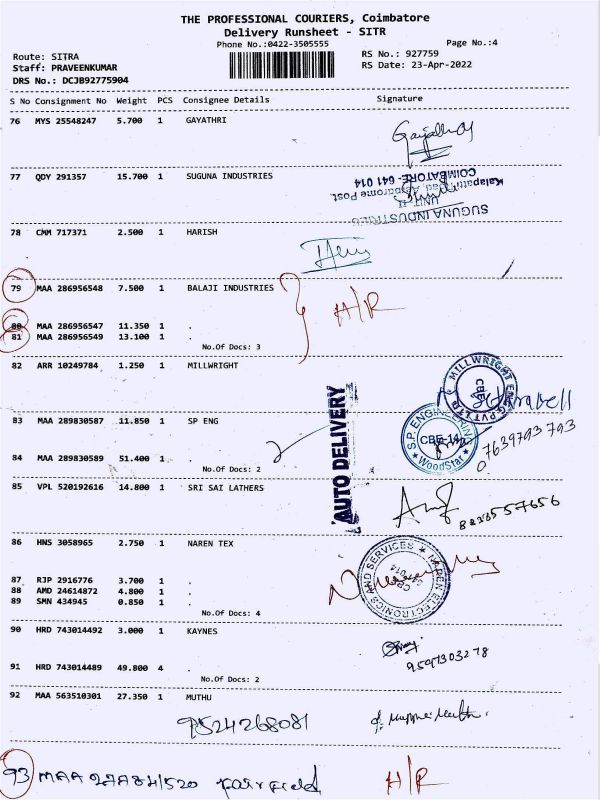 THE PROFESSIONAL COURIERS, Coimbatore
Delivery Runsheet - SITR
Phone No.:0422-3505555
Page No.:4
Route: SITRA
RS No.: 927759
Staff: PRAVEENKUMAR
RS Date: 23-Apr-2022
DRS No.: DCJB92775904
S No Consignment No Weight PCS Consignee Details Signature
76 MYS 25548247 5.700 1 GAYATHRI
77 QDY 291357 15.700 1 SUGUNA INDUSTRIES
SUGUNA INDUSTRIES
UNIT-II
COIMBATORE- 641 014
78 CMM 717371 2.500 1 HARISH
79 MAA 286956548 7.500 1 BALAJI INDUSTRIES
H/R
80 MAA 286956547 11.350 1 .
81 MAA 286956549 13.100 1 .
No.Of Docs: 3
82 ARR 10249784 1.250 1 MILLWRIGHT
83 MAA 289830587 11.850 1 SP ENG
AUTO DELIVERY
S.P. ENGINEERING
CBE-14
WoodStar
07639793793
84 MAA 289830589 51.400 1 .
No.Of Docs: 2
85 VPL 520192616 14.800 1 SRI SAI LATHERS
86 HNS 3058965 2.750 1 NAREN TEX
NAREN ELECTRONICS AND SERVICES
87 RJP 2916776 3.700 1 .
88 AMD 24614872 4.800 1 .
89 SMN 434945 0.850 1 .
No.Of Docs: 4
90 HRD 743014492 3.000 1 KAYNES
9597303278
91 HRD 743014489 49.800 4 .
No.Of Docs: 2
92 MAA 563510301 27.350 1 MUTHU
9524268081
93 MAA Fairfield H/R